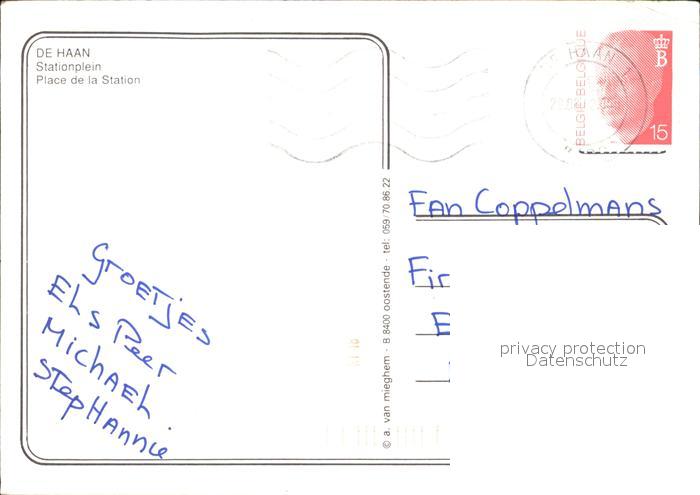 DE HAAN
Stationplein
Place de la Station
BELGIE-BELGIQUE
B
15
DE HAAN 1
© a. van mieghem - B 8400 oostende - tel: 059/70.86.22
Groetjes
Els Peer
Michaël
Stephannie
Fan Coppelmans
Fir
E
privacy protection
Datenschutz